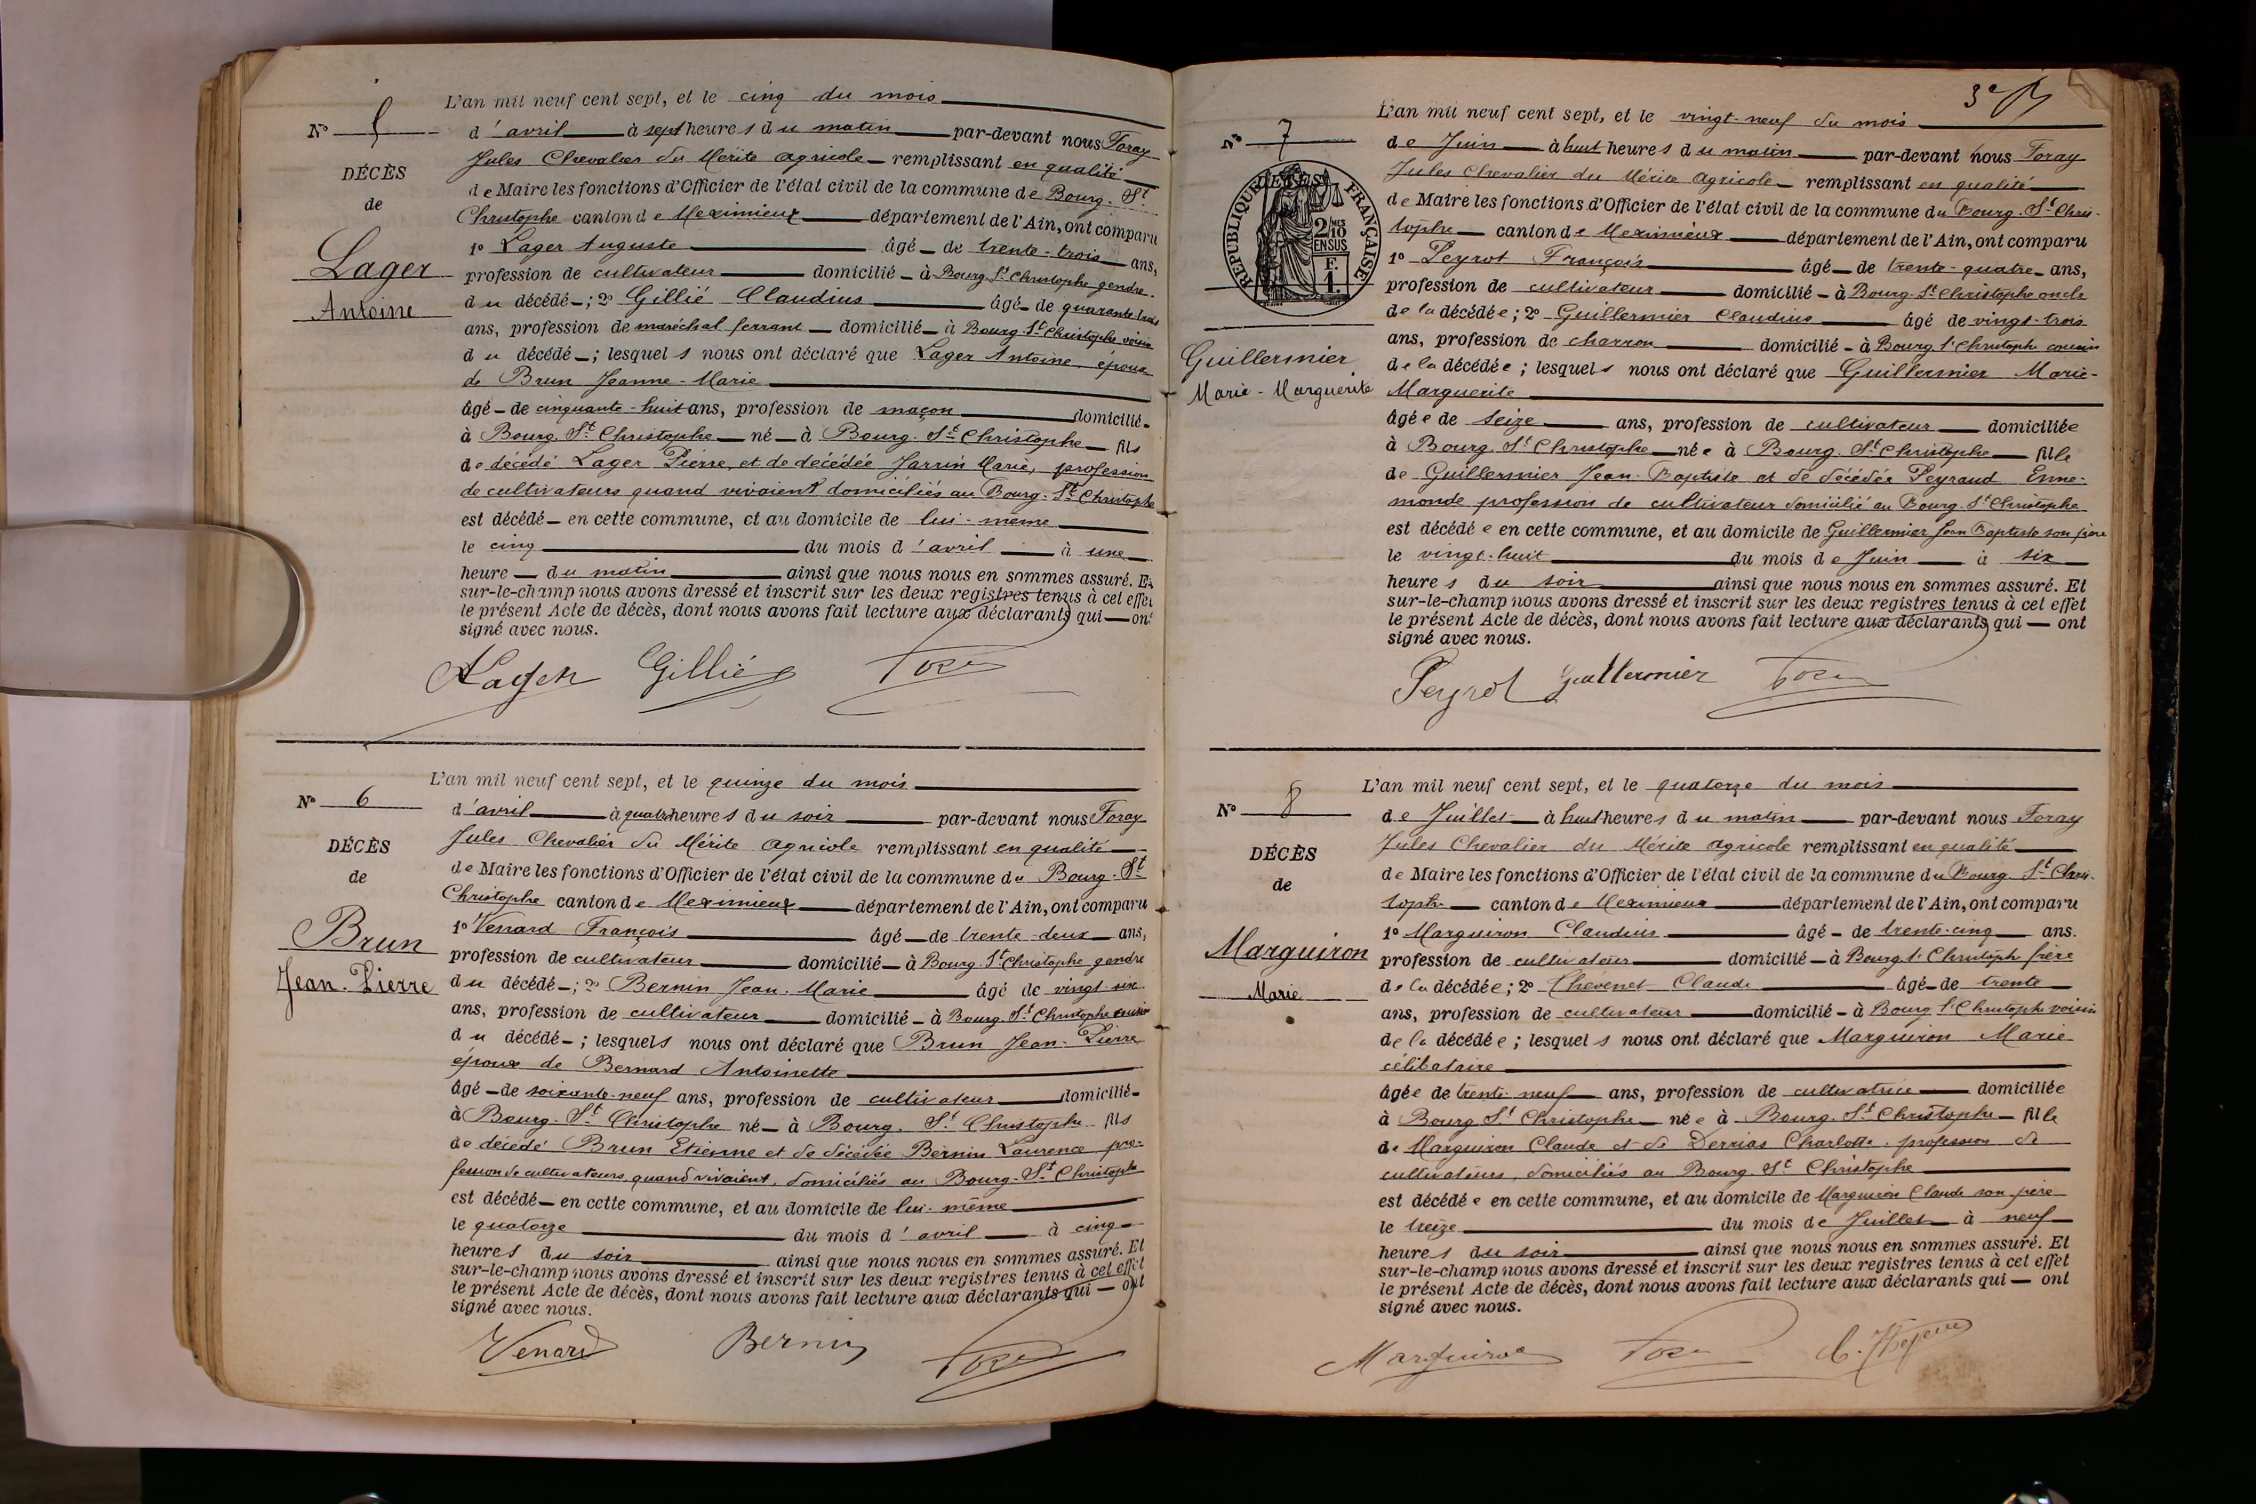 L'an mil neuf cent sept, et le cinq du mois
N° 5
d'avril à sept heures du matin par-devant nous Foray
DÉCÈS
Jules Chevalier du Mérite agricole remplissant en qualité
de
de Maire les fonctions d'Officier de l'état civil de la commune de Bourg-St
Christophe canton de Meximieux département de l'Ain, ont comparu
Lager
Antoine
1° Lager Auguste âgé de trente-trois ans,
profession de cultivateur domicilié à Bourg-St Christophe gendre
du décédé ; 2° Gillié Claudius âgé de quarante-trois
ans, profession de maréchal ferrant domicilié à Bourg-St Christophe voisin
du décédé ; lesquels nous ont déclaré que Lager Antoine, époux
de Brun Jeanne-Marie
âgé de cinquante-huit ans, profession de maçon domicilié
à Bourg-St Christophe né à Bourg-St Christophe fils
de décédé Lager Pierre et de décédée Jarrin Marie, profession
de cultivateurs quand vivaient domiciliés au Bourg-St Christophe
est décédé en cette commune, et au domicile de lui-même
le cinq du mois d'avril à une
heure du matin ainsi que nous nous en sommes assuré. Et
sur-le-champ nous avons dressé et inscrit sur les deux registres tenus à cet effet
le présent Acte de décès, dont nous avons fait lecture aux déclarants qui ont
signé avec nous.
Lager Gillié Foray
L'an mil neuf cent sept, et le quinze du mois
N° 6
d'avril à quatre heures du soir par-devant nous Foray
DÉCÈS
Jules Chevalier du Mérite agricole remplissant en qualité
de
de Maire les fonctions d'Officier de l'état civil de la commune du Bourg-St
Christophe canton de Meximieux département de l'Ain, ont comparu
Brun
Jean-Pierre
1° Venard François âgé de trente-deux ans,
profession de cultivateur domicilié à Bourg-St Christophe gendre
du décédé ; 2° Bernin Jean-Marie âgé de vingt-six
ans, profession de cultivateur domicilié à Bourg-St Christophe
du décédé ; lesquels nous ont déclaré que Brun Jean-Pierre
époux de Bernard Antoinette
âgé de soixante-neuf ans, profession de cultivateur domicilié
à Bourg-St Christophe né à Bourg-St Christophe fils
de décédé Brun Etienne et de décédée Bernin Laurence pro-
fession de cultivateurs, quand vivaient, domiciliés au Bourg-St Christophe
est décédé en cette commune, et au domicile de lui-même
le quatorze du mois d'avril à cinq
heures du soir ainsi que nous nous en sommes assuré. Et
sur-le-champ nous avons dressé et inscrit sur les deux registres tenus à cet effet
le présent Acte de décès, dont nous avons fait lecture aux déclarants qui ont
signé avec nous.
Venard Bernin Foray
3e
L'an mil neuf cent sept, et le vingt-neuf du mois
N° 7
de Juin à huit heures du matin par-devant nous Foray
RÉPUBLIQUE FRANÇAISE
2/10 MES EN SUS
F. 1.
Jules Chevalier du Mérite agricole remplissant en qualité
de Maire les fonctions d'Officier de l'état civil de la commune du Bourg-St Chris-
tophe canton de Meximieux département de l'Ain, ont comparu
1° Peyrot François âgé de trente-quatre ans,
profession de cultivateur domicilié à Bourg-St Christophe oncle
de la décédée ; 2° Guillermier Claudius âgé de vingt-trois
ans, profession de charron domicilié à Bourg St Christophe cousin
Guillermier
Marie-Marguerite
de la décédée ; lesquels nous ont déclaré que Guillermier Marie-
Marguerite
âgée de seize ans, profession de cultivateur domiciliée
à Bourg-St Christophe née à Bourg-St Christophe fille
de Guillermier Jean-Baptiste et de décédée Peyraud Enne-
monde profession de cultivateur domicilié au Bourg-St Christophe
est décédée en cette commune, et au domicile de Guillermier Jean Baptiste son père
le vingt-huit du mois de Juin à six
heures du soir ainsi que nous nous en sommes assuré. Et
sur-le-champ nous avons dressé et inscrit sur les deux registres tenus à cet effet
le présent Acte de décès, dont nous avons fait lecture aux déclarants qui ont
signé avec nous.
Peyrot Guillermier Foray
L'an mil neuf cent sept, et le quatorze du mois
N° 8
de Juillet à huit heures du matin par-devant nous Foray
DÉCÈS
Jules Chevalier du Mérite agricole remplissant en qualité
de
de Maire les fonctions d'Officier de l'état civil de la commune du Bourg-St Chris-
tophe canton de Meximieux département de l'Ain, ont comparu
Marguiron
Marie
1° Marguiron Claudius âgé de trente-cinq ans.
profession de cultivateur domicilié à Bourg St Christophe frère
de la décédée ; 2° Chevenet Claude âgé de trente
ans, profession de cultivateur domicilié à Bourg St Christophe voisin
de la décédée ; lesquels nous ont déclaré que Marguiron Marie
célibataire
âgée de trente-neuf ans, profession de cultivatrice domiciliée
à Bourg St Christophe née à Bourg-St Christophe fille
de Marguiron Claude et de Derrias Charlotte, profession de
cultivateurs, domiciliés au Bourg St Christophe
est décédée en cette commune, et au domicile de Marguiron Claude son père
le treize du mois de Juillet à neuf
heures du soir ainsi que nous nous en sommes assuré. Et
sur-le-champ nous avons dressé et inscrit sur les deux registres tenus à cet effet
le présent Acte de décès, dont nous avons fait lecture aux déclarants qui ont
signé avec nous.
Marguiron Foray